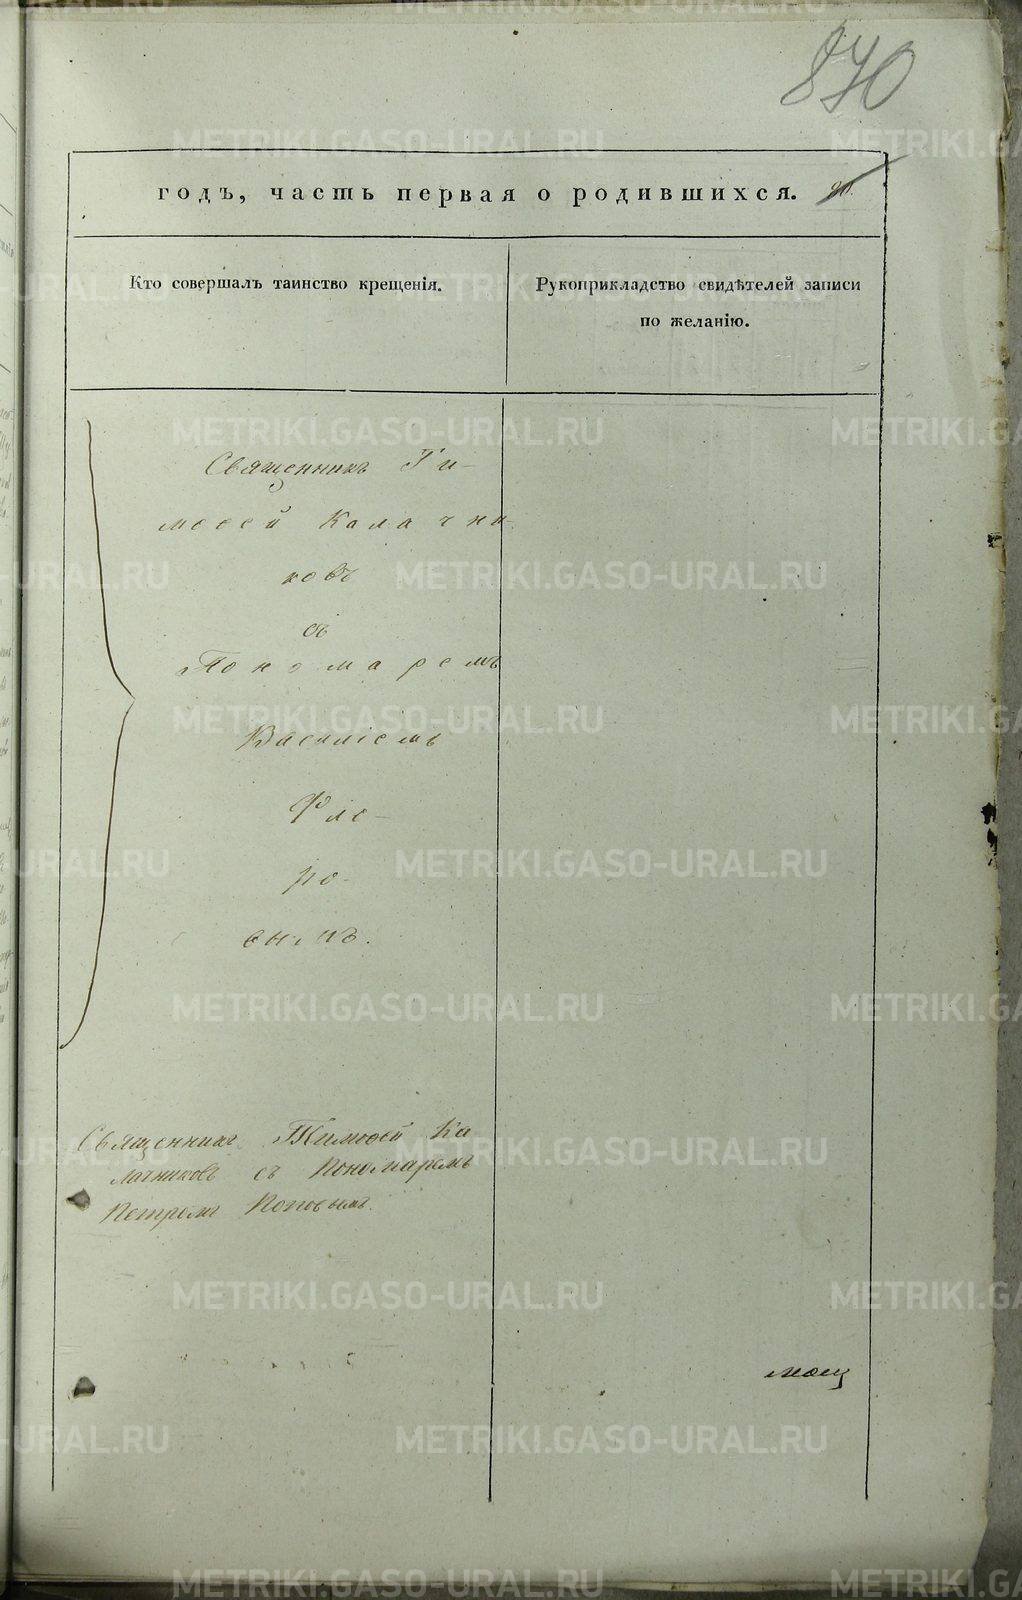 870
годъ, часть первая о родившихся.
Кто совершалъ таинство крещенія.
Рукоприкладство свидѣтелей записи
по желанію.
Священникъ Ти-
мофей Калачни-
ковъ
съ
Пономаремъ
Василіемъ
Фло-
ро-
вымъ.
Священникъ Тимофей Ка
лачниковъ съ Пономаремъ
Петромъ Поповымъ.
METRIKI.GASO-URAL.RU